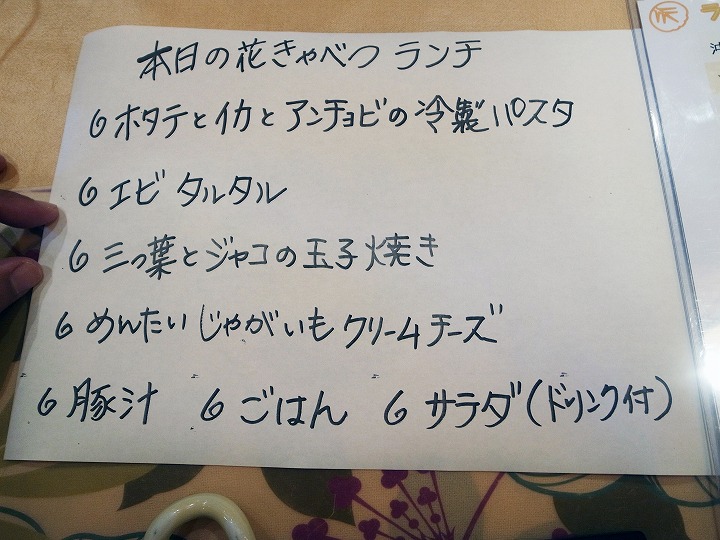 本日の花きゃべつ ランチ
6 ホタテとイカとアンチョビの冷製パスタ
6 エビ タルタル
6 三っ葉とジャコの玉子焼き
6 めんたいじゃがいもクリームチーズ
6 豚汁 6 ごはん 6 サラダ(ドリンク付)